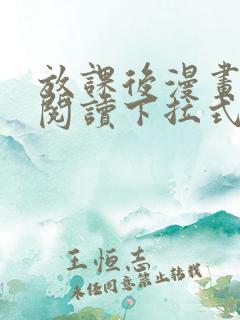 放課後漫畫
閱讀下拉式
王恒志
未经同意禁止转载